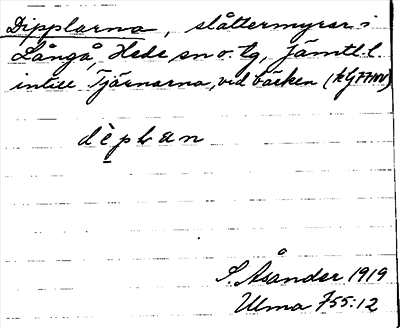 Dipplarna, slåttermyrar i
Långå, Hede sn o. lg, Jämtl. l.
intill Tjärnarna, vid bäcken
dèplan
S. Åsander 1919
Ulma 755:12